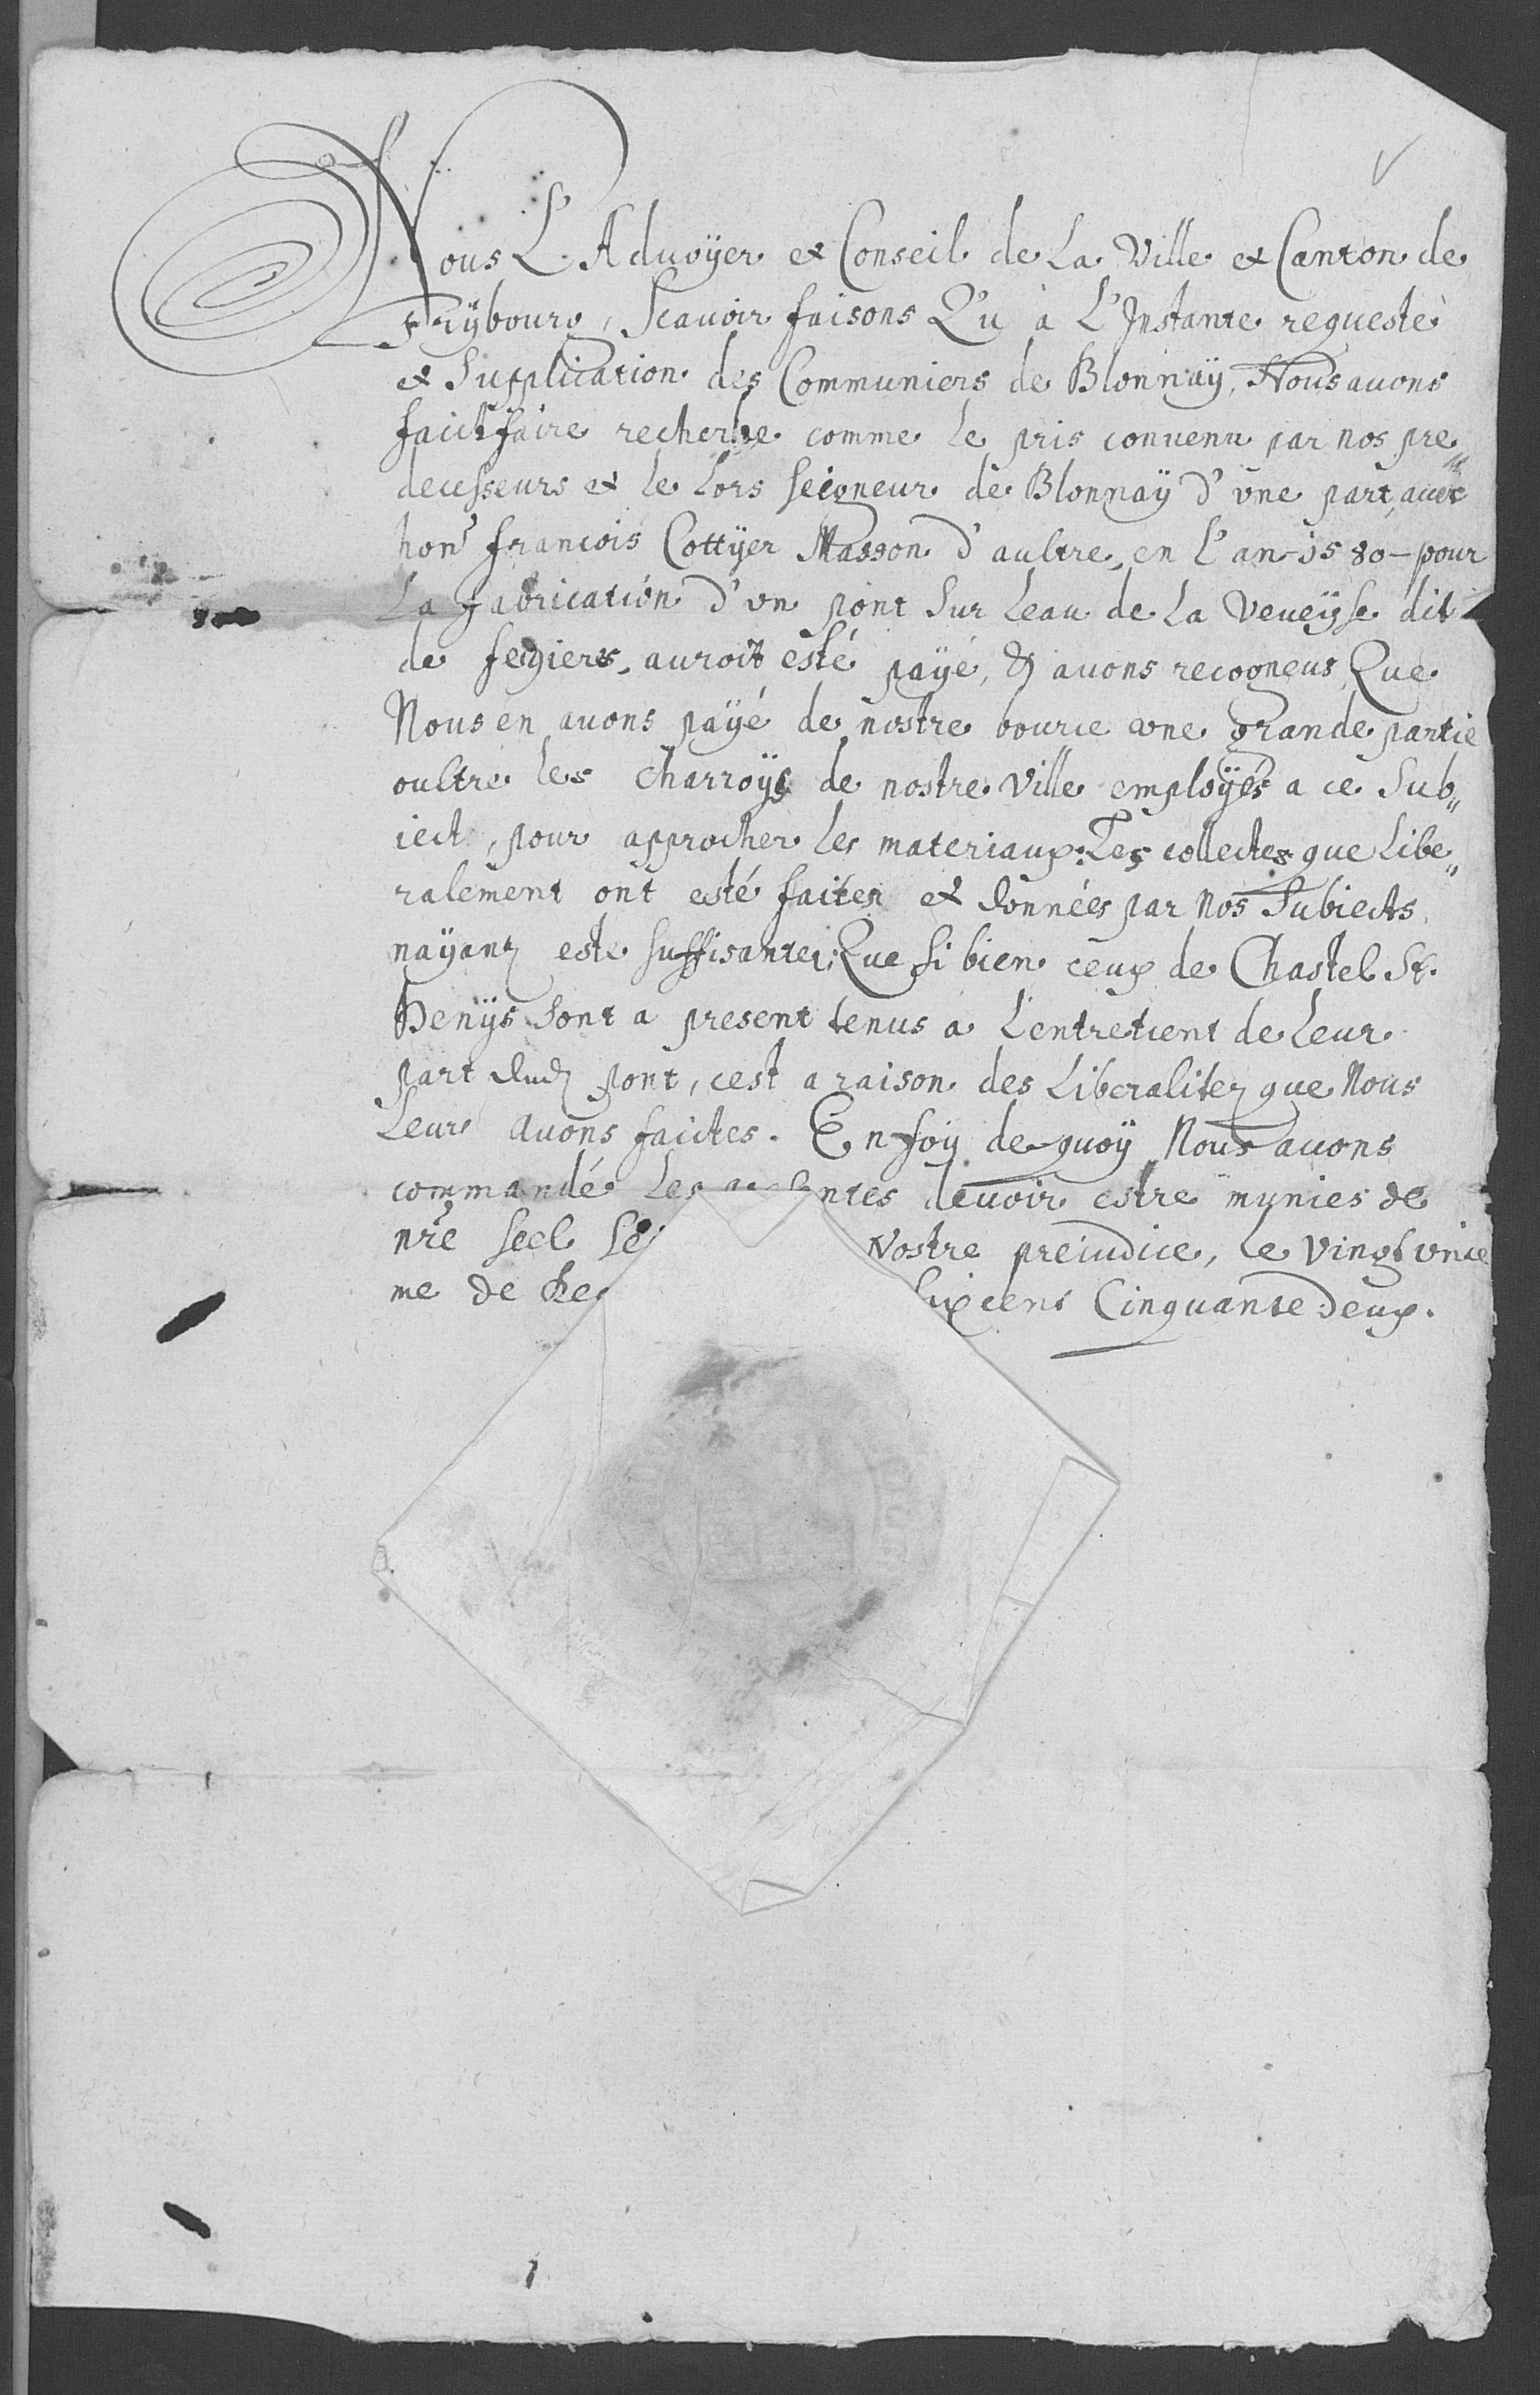 Nous L'Aduoÿer et Conseil de La Ville et Canton de
Frÿbourg, Scauoir faisons Qu'à L'Instante requeste
et Supplication des Communiers de Blonnaÿ, Nous auons
faict faire recherhe comme le pris conuenu par nos pre„
decesseurs et le Lors Seigneur de Blonnaÿ d'vne part, auec
hon^e francois Cottÿer Masson d'aultre, en l'an 1580 pour
La fabrication d'vn pont Sur Leau de La Veueÿse dit
de fegiers, auroit esté payé, Et auons recogneus Que
Nous en auons paÿé de nostre bource vne grande partie
oultre les charroÿs de nostre Ville emploÿés a ce Sub„
iect, pour approcher les materiaux: Les collectes que Libe„
ralement ont esté faites et données par Nos Subiects
nayantz esté suffisantes; Que si bien ceux de Chastel St.
Denÿs Sont a present tenus a L'entretient de Leur
part dud pont, cest a raison des Liberalitez que Nous
Leur auons faictes. En foy de quoÿ Nous auons
commandé Les ntes deuoir estre mynies de
nre Seel Nostre preiudice, le vingt vnie
me de Sixcens Cinquante deux.